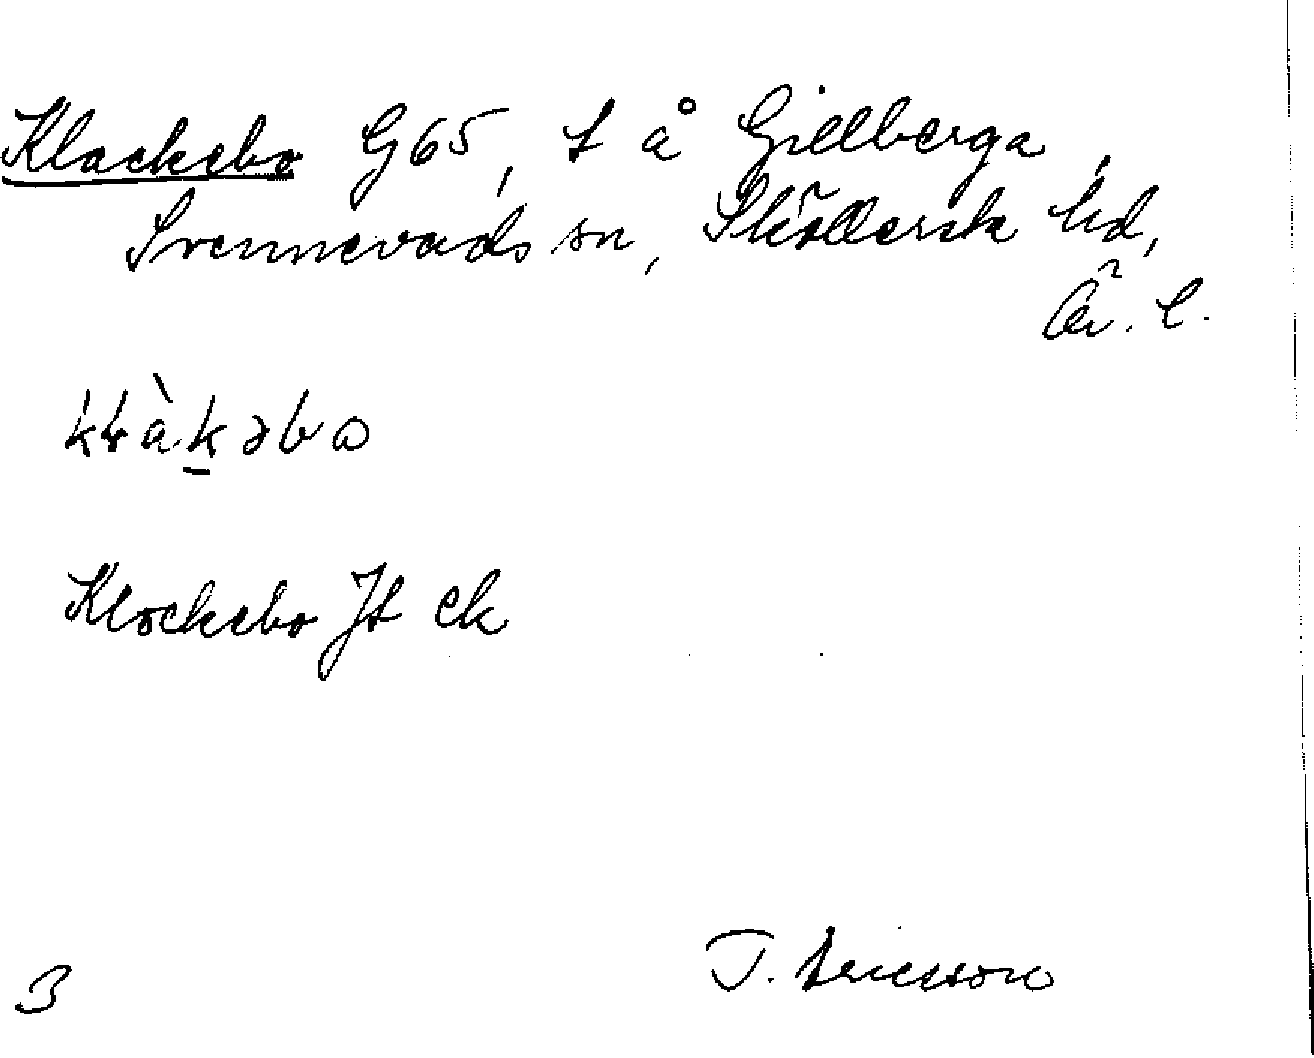 Klackebo G65, t å Gillberga,
Svennevads sn, Sköllersta hd,
Ör. l.
Klockebo Jt ek
T. Ericsson
3